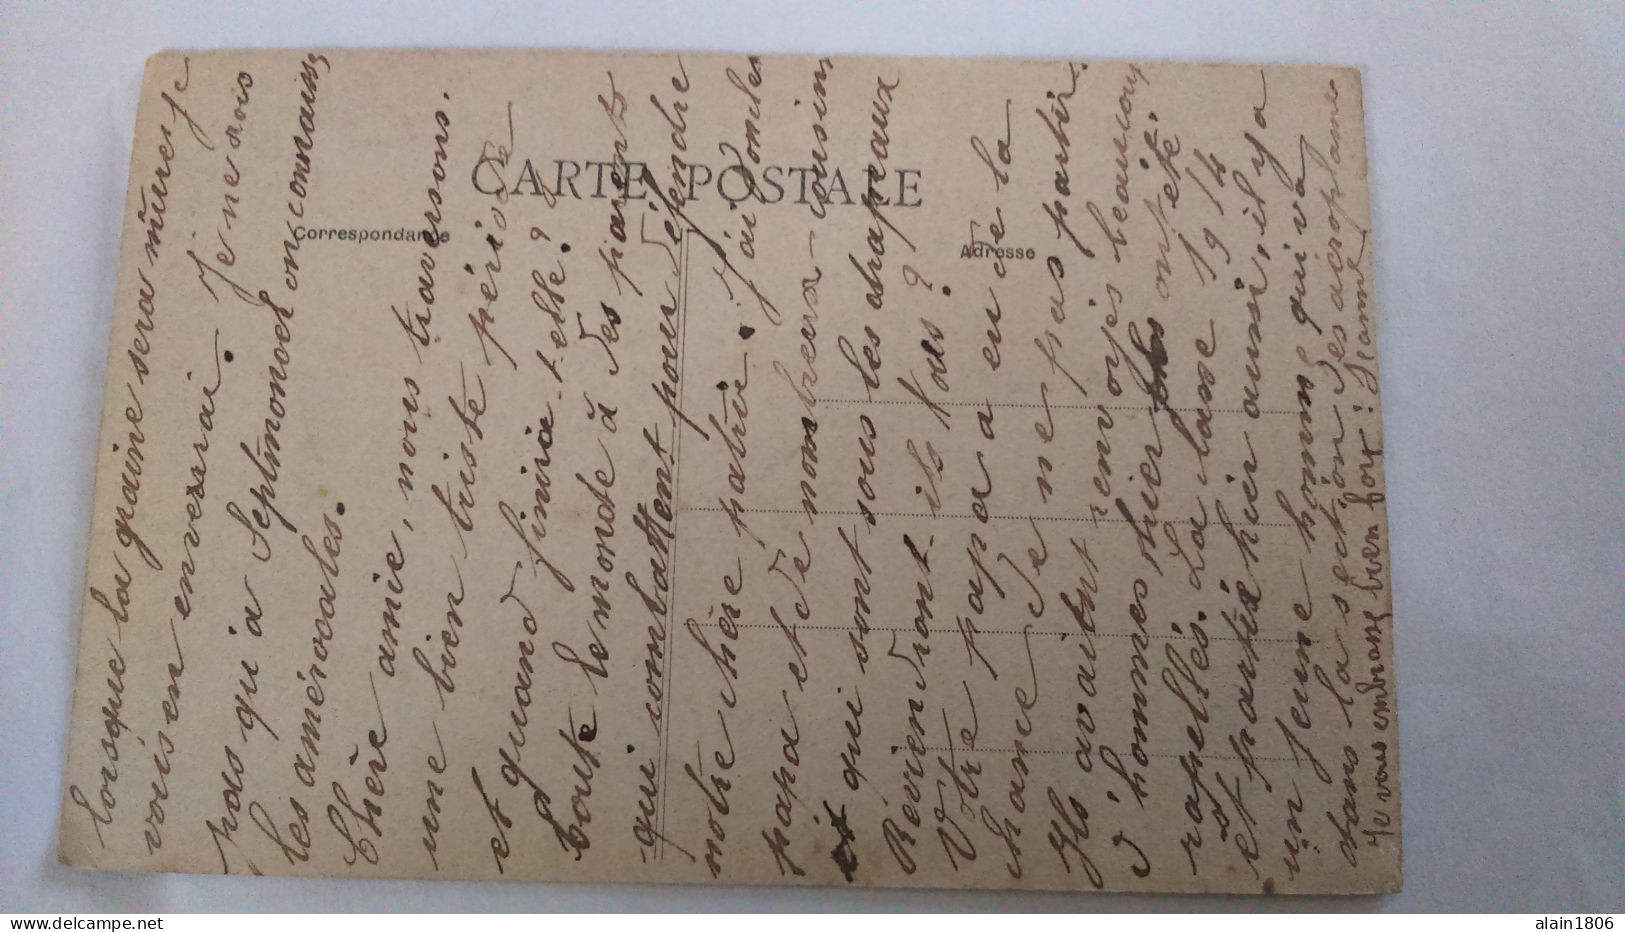 CARTE POSTALE
Correspondance
Adresse
lorsque la graine sera mûre je
vous en enverrai. Je ne vois
pas qu'à Septmoncel on connaisse
les améroales.
Chère amie, nous traversons
une bien triste période
et quand finira-t-elle?
toute le monde à des parents
qui combattent pour défendre
notre chère patrie. J'ai
papa et de nombreux cousins
et qui sont sous les drapeaux
Reviendront-ils tous?
Votre papa a eu de la
chance de ne pas partir.
Ils avaitnt renvoyés beaucoup
d'hommes hier ont été
rapellés. La classe 1914
et partie hier aussi, il y a
un jeune homme qui va
dans la section des aéroplanes
Je vous embrasse bien fort: Jeanne
alain1806